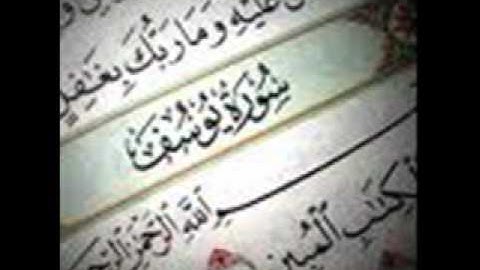 عَلَيْهِ وَمَا رَبُّكَ بِغَٰفِلٍ
سُورَةُ يُوسُفَ
ـسْمِ ٱللَّهِ ٱلرَّحْمَٰنِ ٱلرَّحِيـ
ٱلْكِتَٰبِ ٱلْمُبِينِ